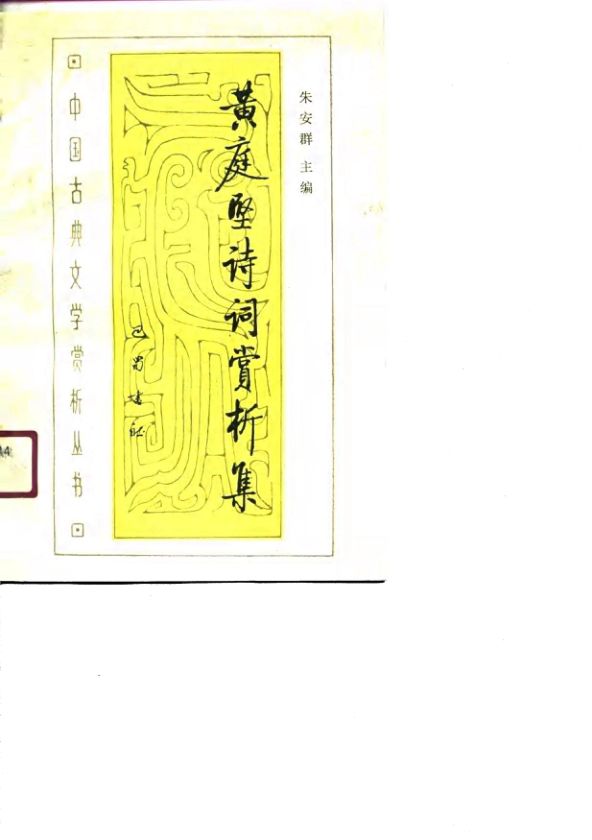 朱安群 主编
黄庭坚诗词赏析集
巴蜀书社
中国古典文学赏析丛书